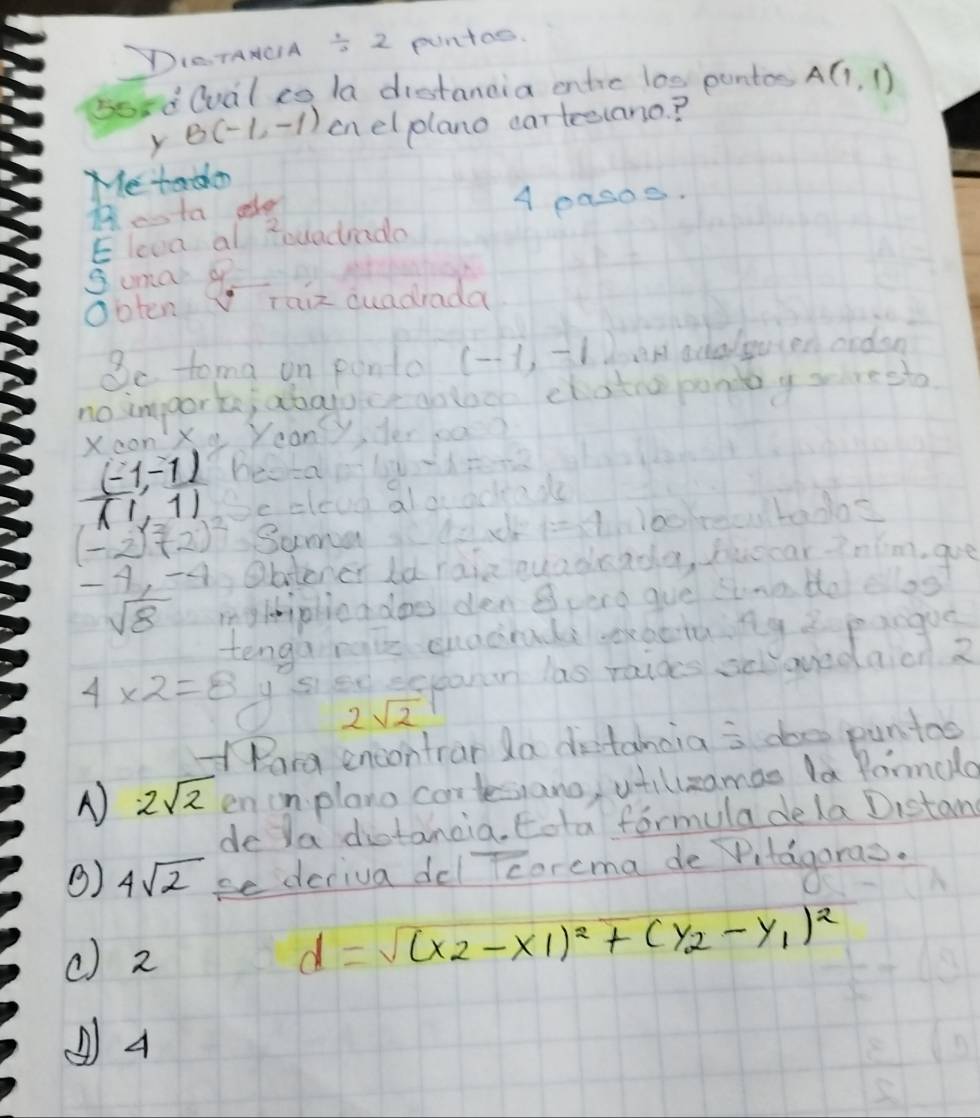 DISTANCIA ÷ 2 puntos.
55. ¿Cuál es la distancia entre los puntos A(1, 1)
y B(-1, -1) en el plano cartesiano?
Metodo
4 pasos.
Resta
Eleva al ² cuadrado
Suma
Obten √ raiz cuadrada
Se toma un punto (-1, -1) en cualquier orden
no importa, abajo se coloca el otro punto y se resta
X con X y Y con Y,
(-1, -1) Resta
(1, 1) Se eleva al cuadrado
(-2)² (-2)² Suma los resultados
-4, -4 Obtener la raiz cuadrada, buscar 2 núm. que
√8 multiplicados den 8 pero que uno de ellos
tenga raiz cuadrada exacta
4 x 2 = 8 y si se separan las raices
2√2
Para encontrar la distancia ÷ dos puntos
A) 2√2 en un plano cartesiano, utilizamos la fórmula
de la distancia. Esta fórmula de la Distan
B) 4√2 se deriva del Teorema de Pitágoras.
C) 2 d = √(x2 - x1)² + (y2 - y1)²
D) 4